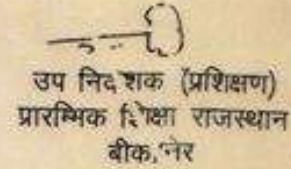 उप निदेशक (प्रशिक्षण)
प्रारम्भिक शिक्षा राजस्थान
बीकानेर